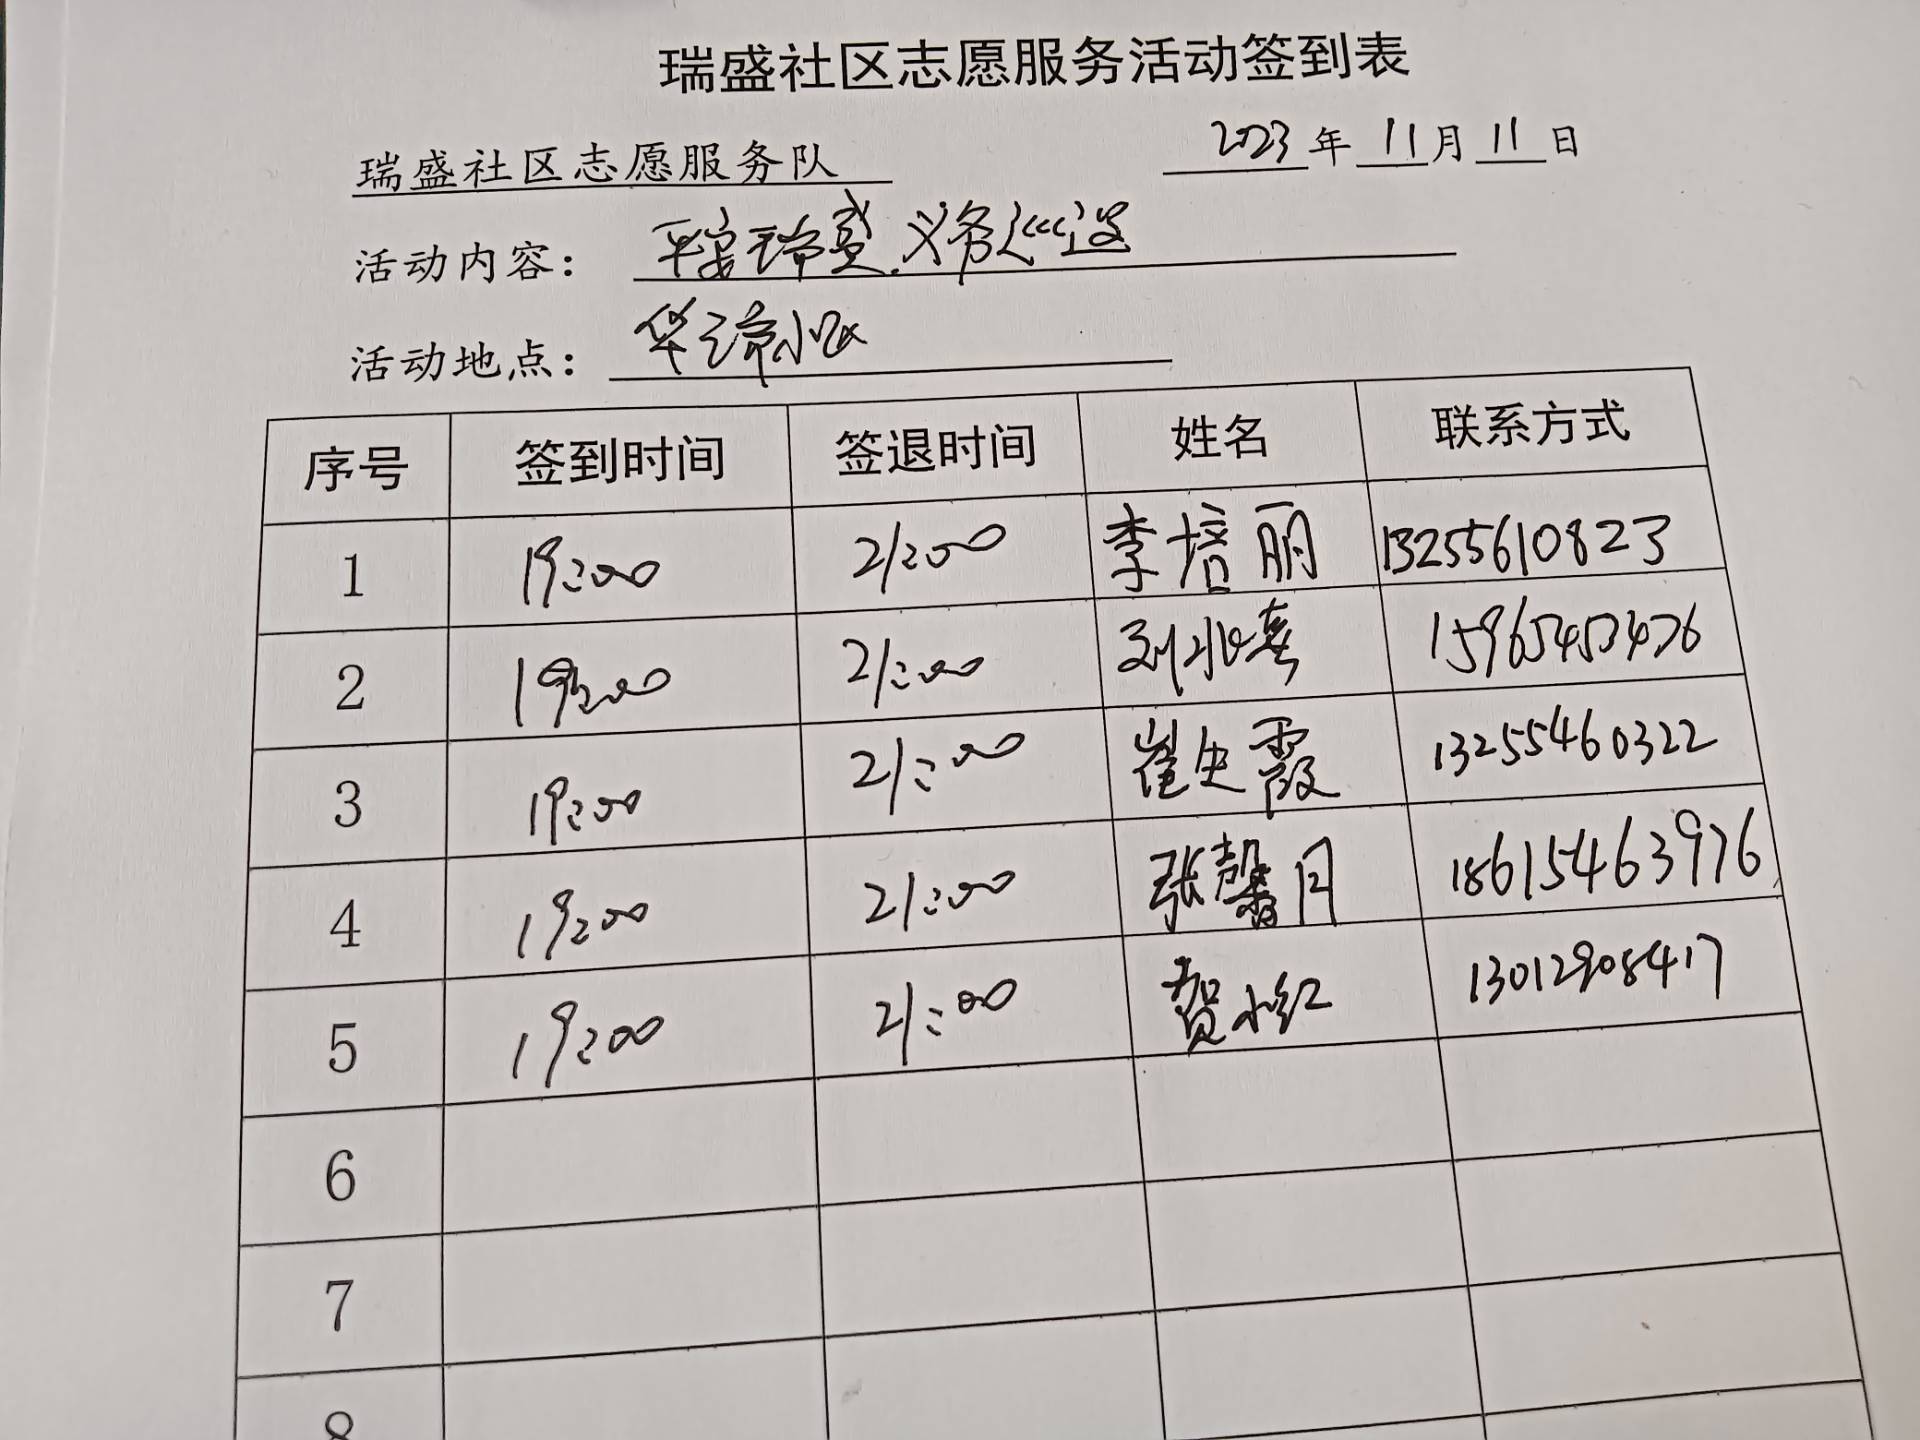 瑞盛社区志愿服务活动签到表
瑞盛社区志愿服务队 2023 年 11 月 11 日
活动内容: 平安瑞盛.义务巡逻
活动地点: 小区
序号 签到时间 签退时间 姓名 联系方式
1 19:00 21:00 李培丽 13255610823
2 19:00 21:00 刘 15965453476
3 19:00 21:00 崔 霞 13255460322
4 19:00 21:00 张馨月 18615463976
5 19:00 21:00 贺小红 13012908417
6
7
8